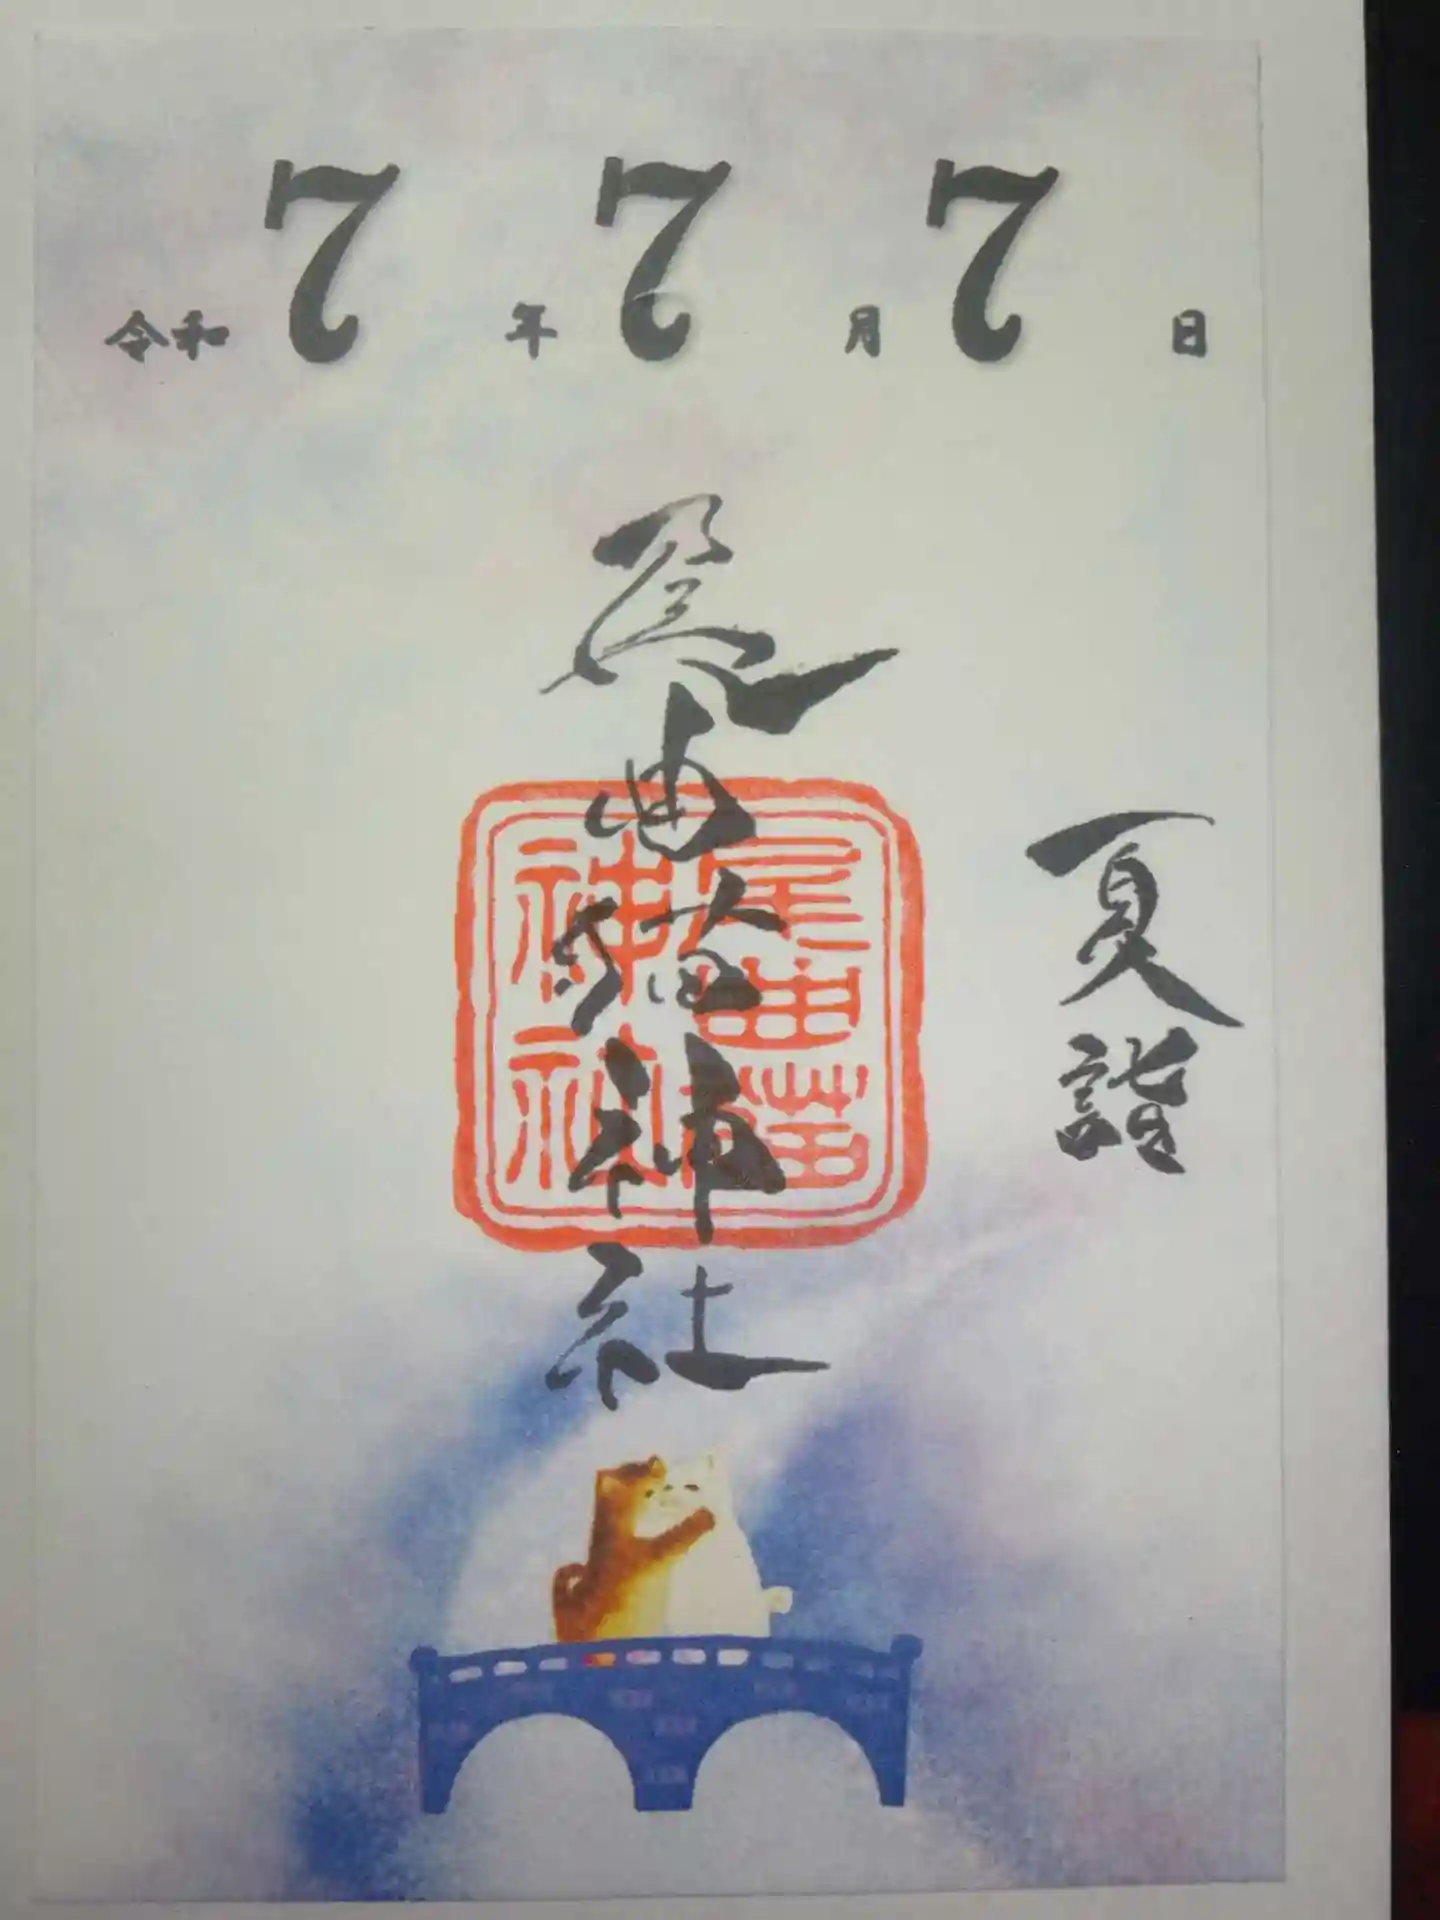 令和7年7月7日
夏詣
尾曲猫神社
尾曲猫
神社